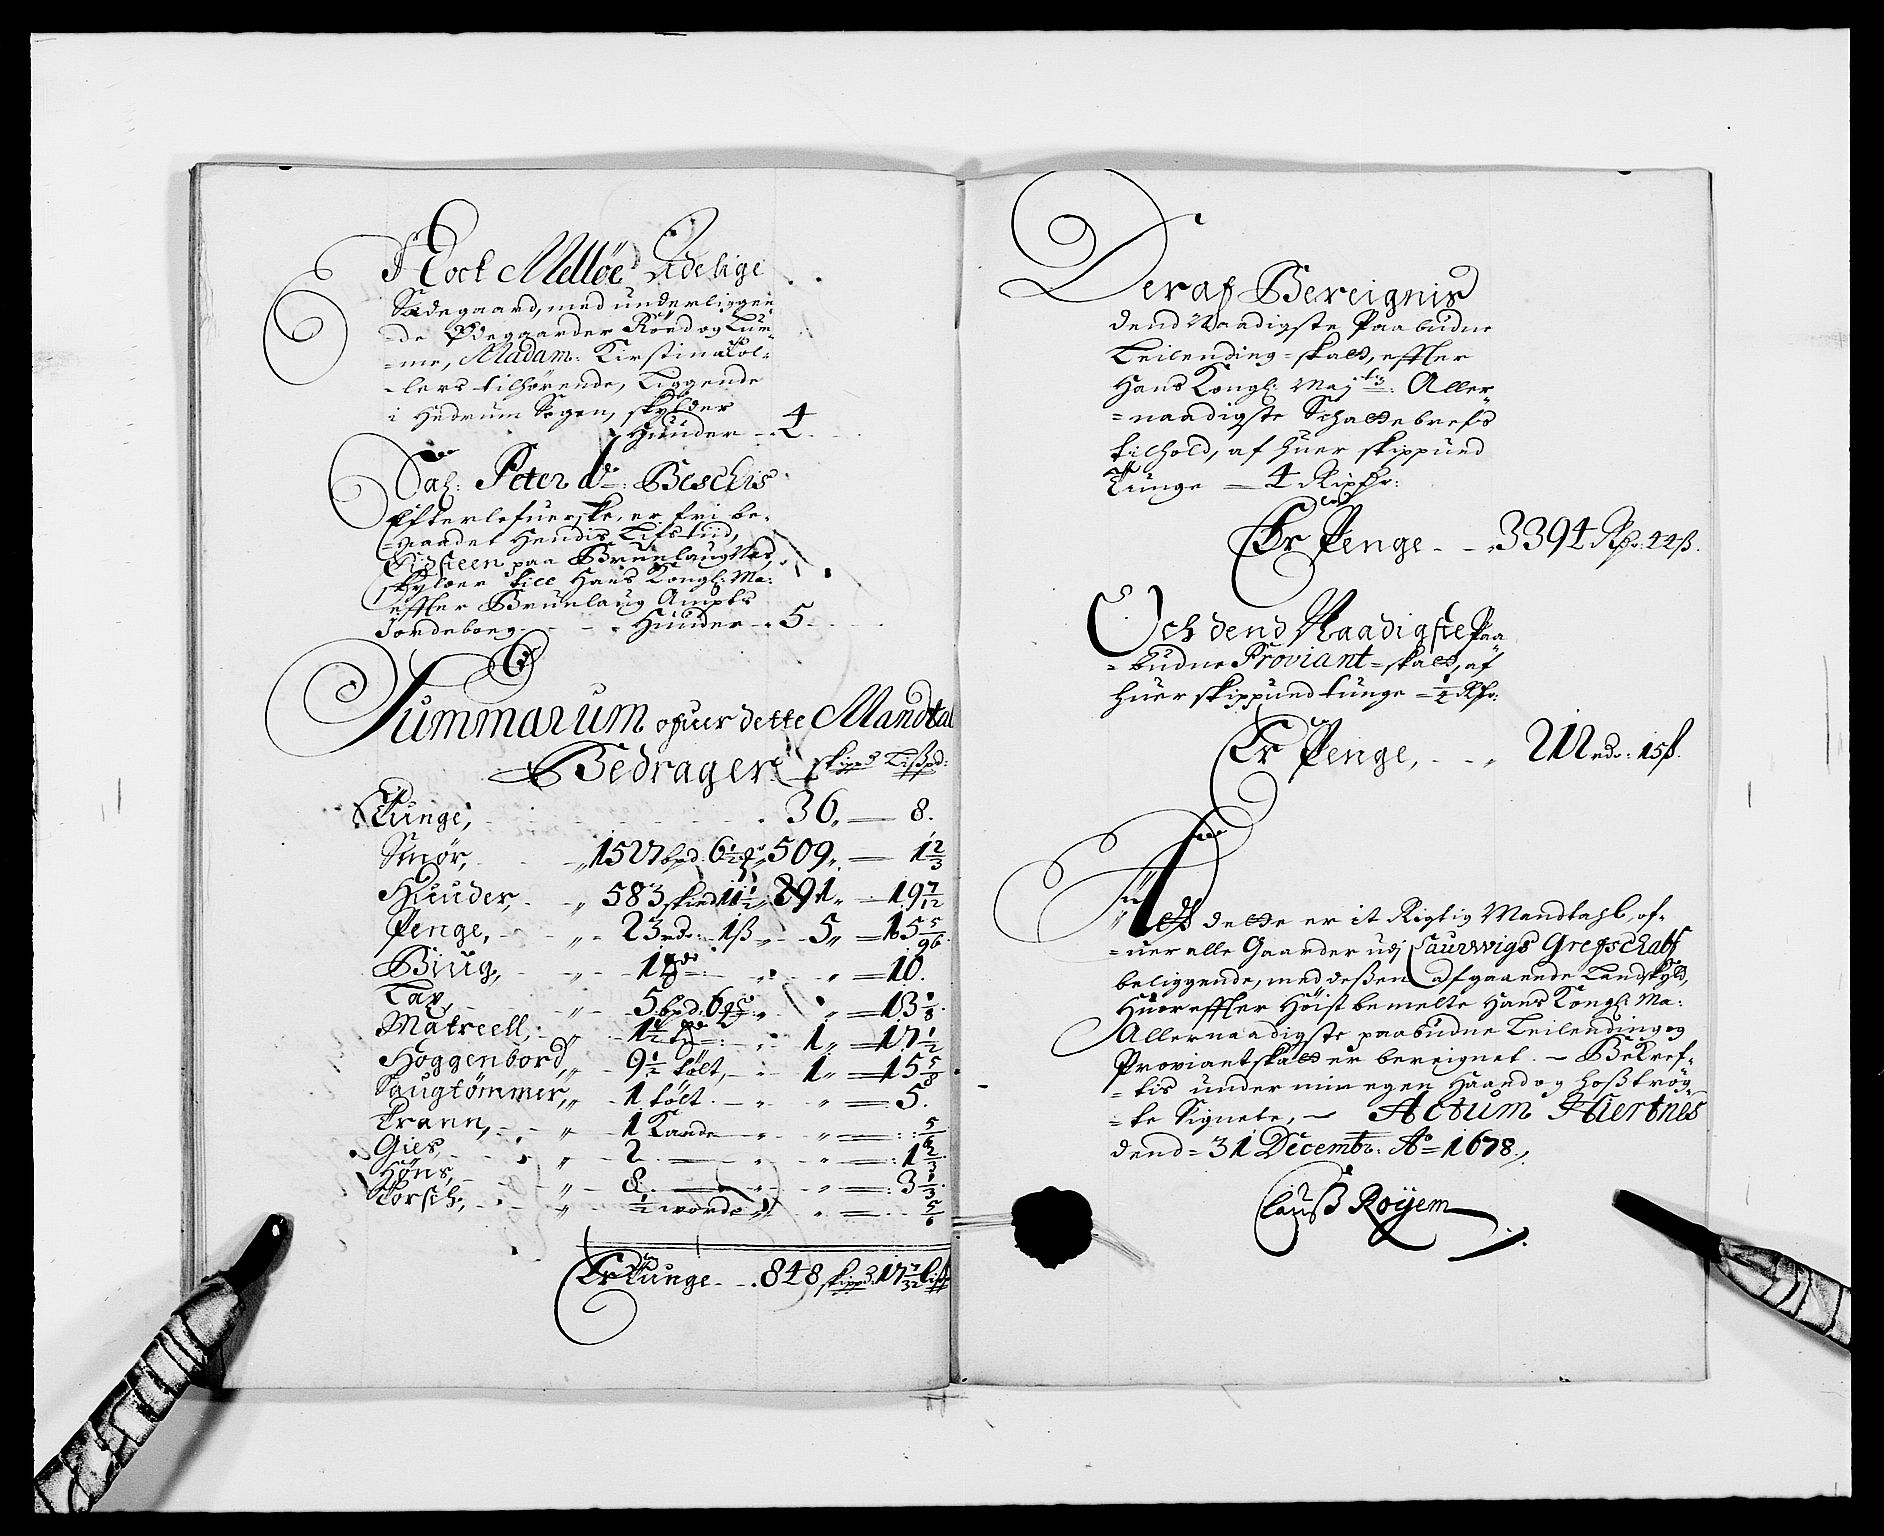 Nock Melløe Adelige
Sædegaard, med underliggen
-de Ødegaarder Röed og Lun-
-me, Madam: Kirstina Tol-
-lers tilhørende, Liggende
i Hedrum Sogen, skylder
Huuder - 4
Sal: Peter de: Beschis
Efterlefuerske, er fri be-
-vaardet Hendis Lifstiid,
paa Bruelaugnes,
skylder till Hans Kongl: Ma:
effter Bruelaug Ampts
Jordeboeg - - - Huuder - 5
Summarum ofuer dette Mandtal
Bedrager skippd Lißpd:
Tunge, - - - 36 — 8.
Smør, - 1527 bpd: 6½ 509 — 1⅔
Huuder, - 583 11½ 291 — 19 7/12
Penge, - 23 rdr: 1ß - 5 — 15 5/96
Biug, - 1 — 10.
Lax, - 5 bpd: 6 — 13⅛
Matreell, - 1½ - 1 — 17½
Hoggenbord, - 9½ tölt, - 1 — 15⅝
Saugtömmer, - 1 tölt - 5.
Trann, - 1 Kande — 5/6
Gies, - 2 — 1⅔
Høns, - 8 — 3⅓
Torsch, - ½ — 5/6
Er Tunge - 848 skippd: 17 7/32 Lißp
Deraf Bereignis
dend Naadigste Paabudne
Leilending-skatt, effter
Hans Kongl: Maj ts: Aller-
-naadigste Schattebrefs
tilhold, af huer skippund
Tunge — 4 Rixdr:
Er Penge - - 3394 Rdr: 44ß.
Och dend Naadigste Paa
-budne Proviant-skatt, af
huer skippund tunge - ¼ Rdr:
Er Penge, - - 212 rdr: 15ß.
At dette er it Rigtig Mandtahl, of-
-uer alle Gaarder udj Laurwigs Grefschaft
beliggende, med deßen afgaaende Landskyld,
Huoreffter Höistbemelte Hans Kongl: Ma:
Allernaadigste paabudne Leilending og
Proviantskatt er bereignet. - Bekref-
-tis under min egen Haand og hoßtrög-
-te Signete, - Actum Hiertnes
dend - 31 Decembr: Ao 1678.
Clauß Röyem